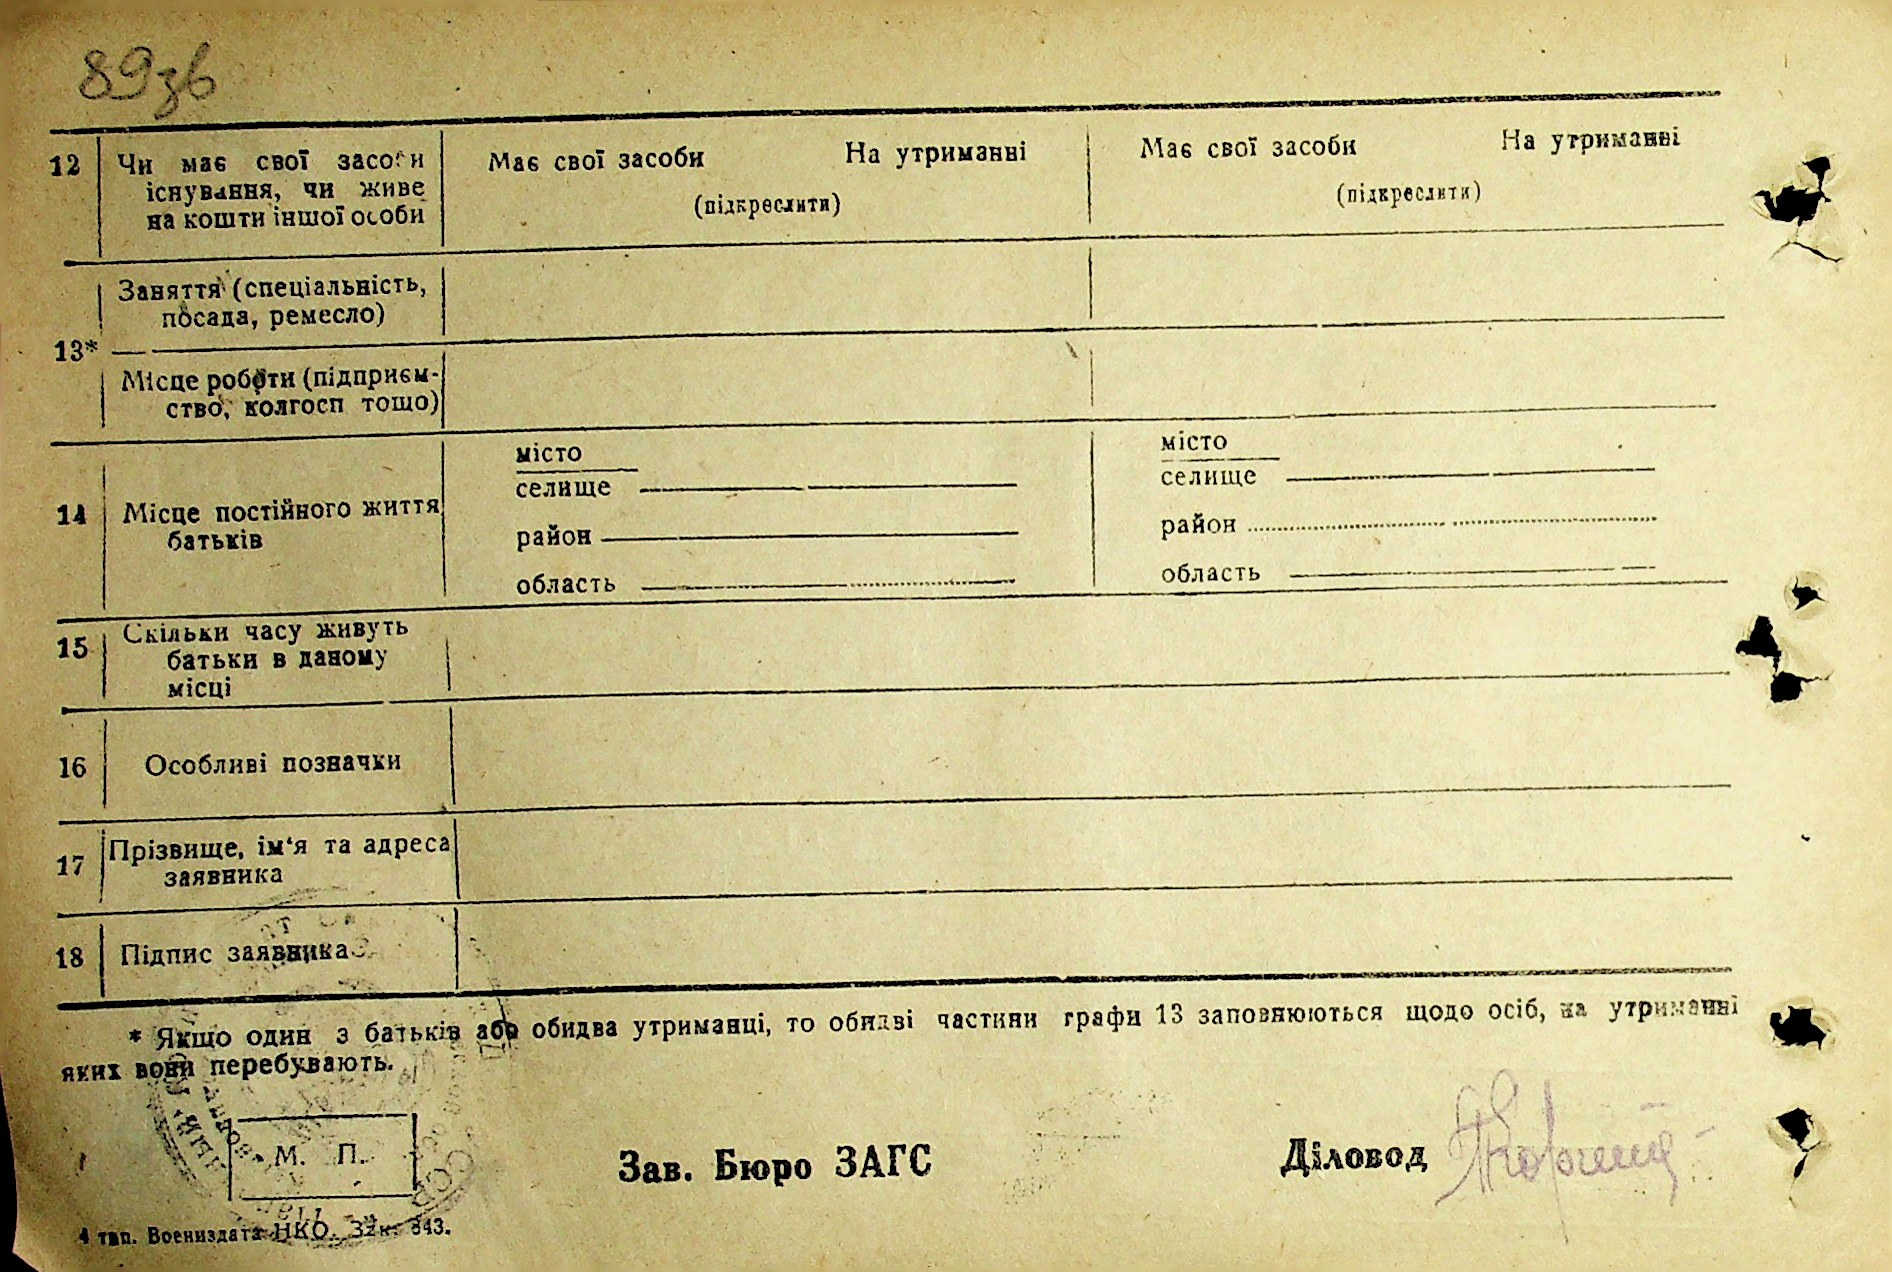 89зв
12 Чи має свої засоби Має свої засоби На утриманні Має свої засоби На утриманні
існування, чи живе
на кошти іншої особи (підкреслити) (підкреслити)
Заняття (спеціальність,
посада, ремесло)
13*
Місце роботи (підприєм-
ство, колгосп тощо)
місто місто
селище селище
14 Місце постійного життя
батьків
район район
область область
15 Скільки часу живуть
батьки в даному
місці
16 Особливі позначки
17 Прізвище, ім‘я та адреса
заявника
18 Підпис заявника
* Якщо один з батьків або обидва утриманці, то обидві частини графи 13 заповнюються щодо осіб, на утриманні
яких вони перебувають.
М. П.
Зав. Бюро ЗАГС Діловод
ССР
4 тип. Воениздата НКО. Зак. 843.